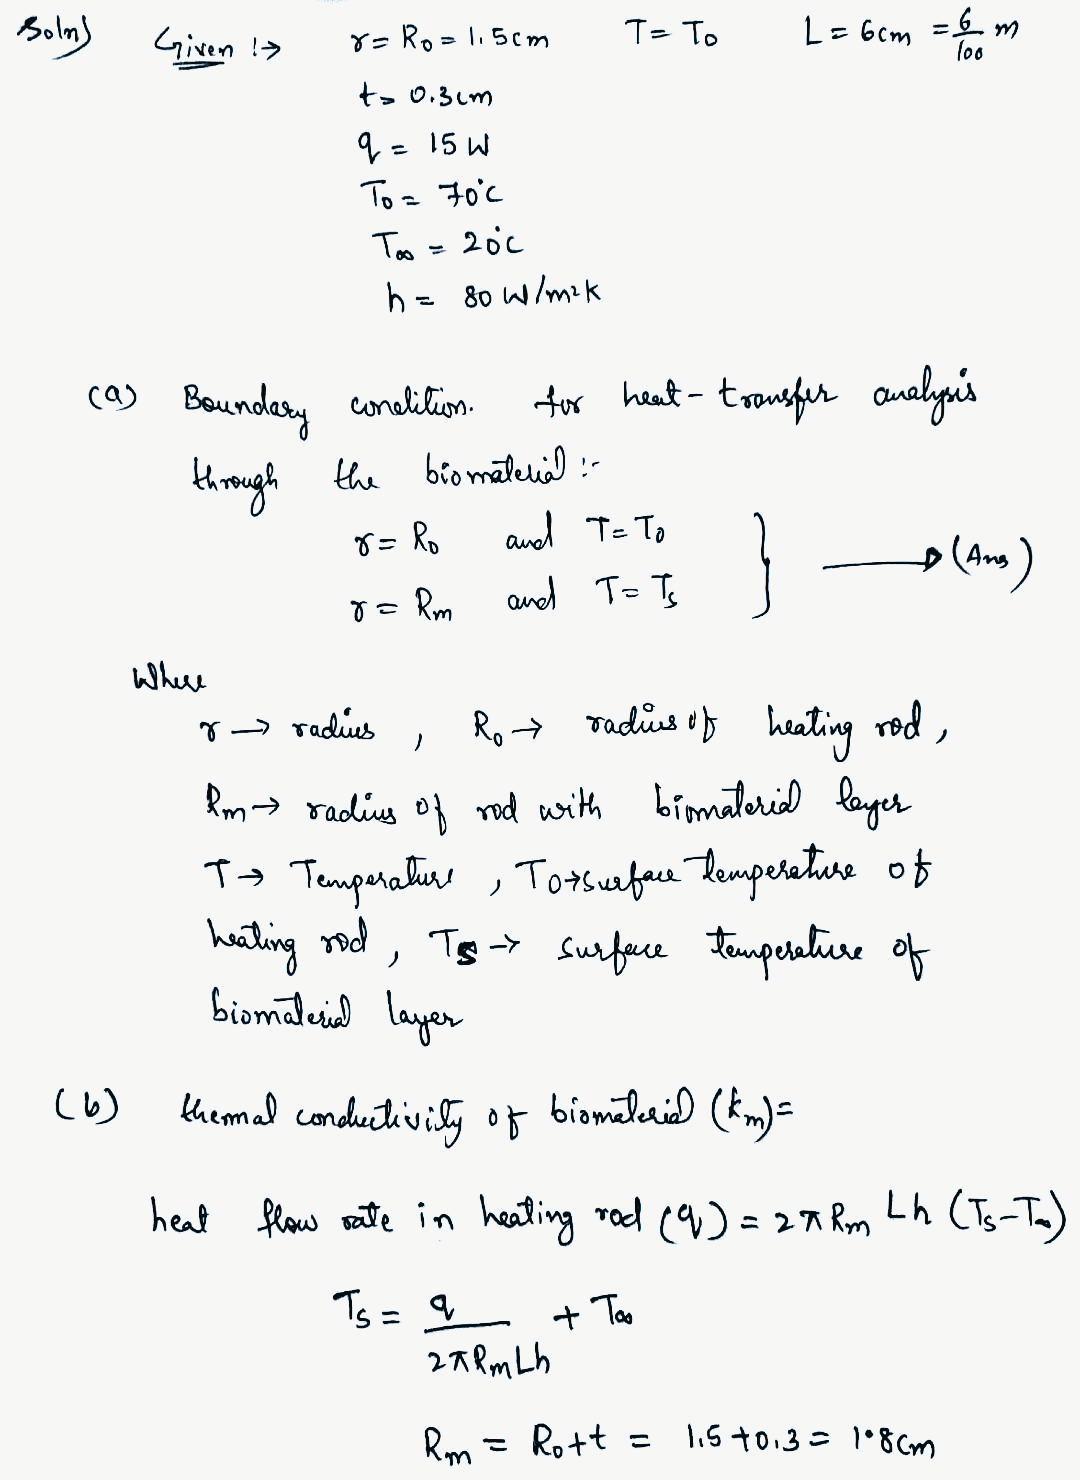 Soln) Given :→ r = R₀ = 1.5cm T = T₀ L = 6cm = 6/100 m
t = 0.3cm
q = 15 W
T₀ = 70°C
T∞ = 20°C
h = 80 W/m²K
(a) Boundary condition. for heat-transfer analysis
through the biomaterial :-
r = R₀ and T = T₀
r = Rm and T = Ts } → (Ans)
Where
r → radius , R₀ → radius of heating rod ,
Rm → radius of rod with biomaterial layer
T → Temperature , T₀ → surface temperature of
heating rod , Ts → surface temperature of
biomaterial layer
(b) thermal conductivity of biomaterial (km) =
heat flow rate in heating rod (q) = 2π Rm Lh (Ts - T∞)
Ts = q / 2π Rm Lh + T∞
Rm = R₀ + t = 1.5 + 0.3 = 1.8cm